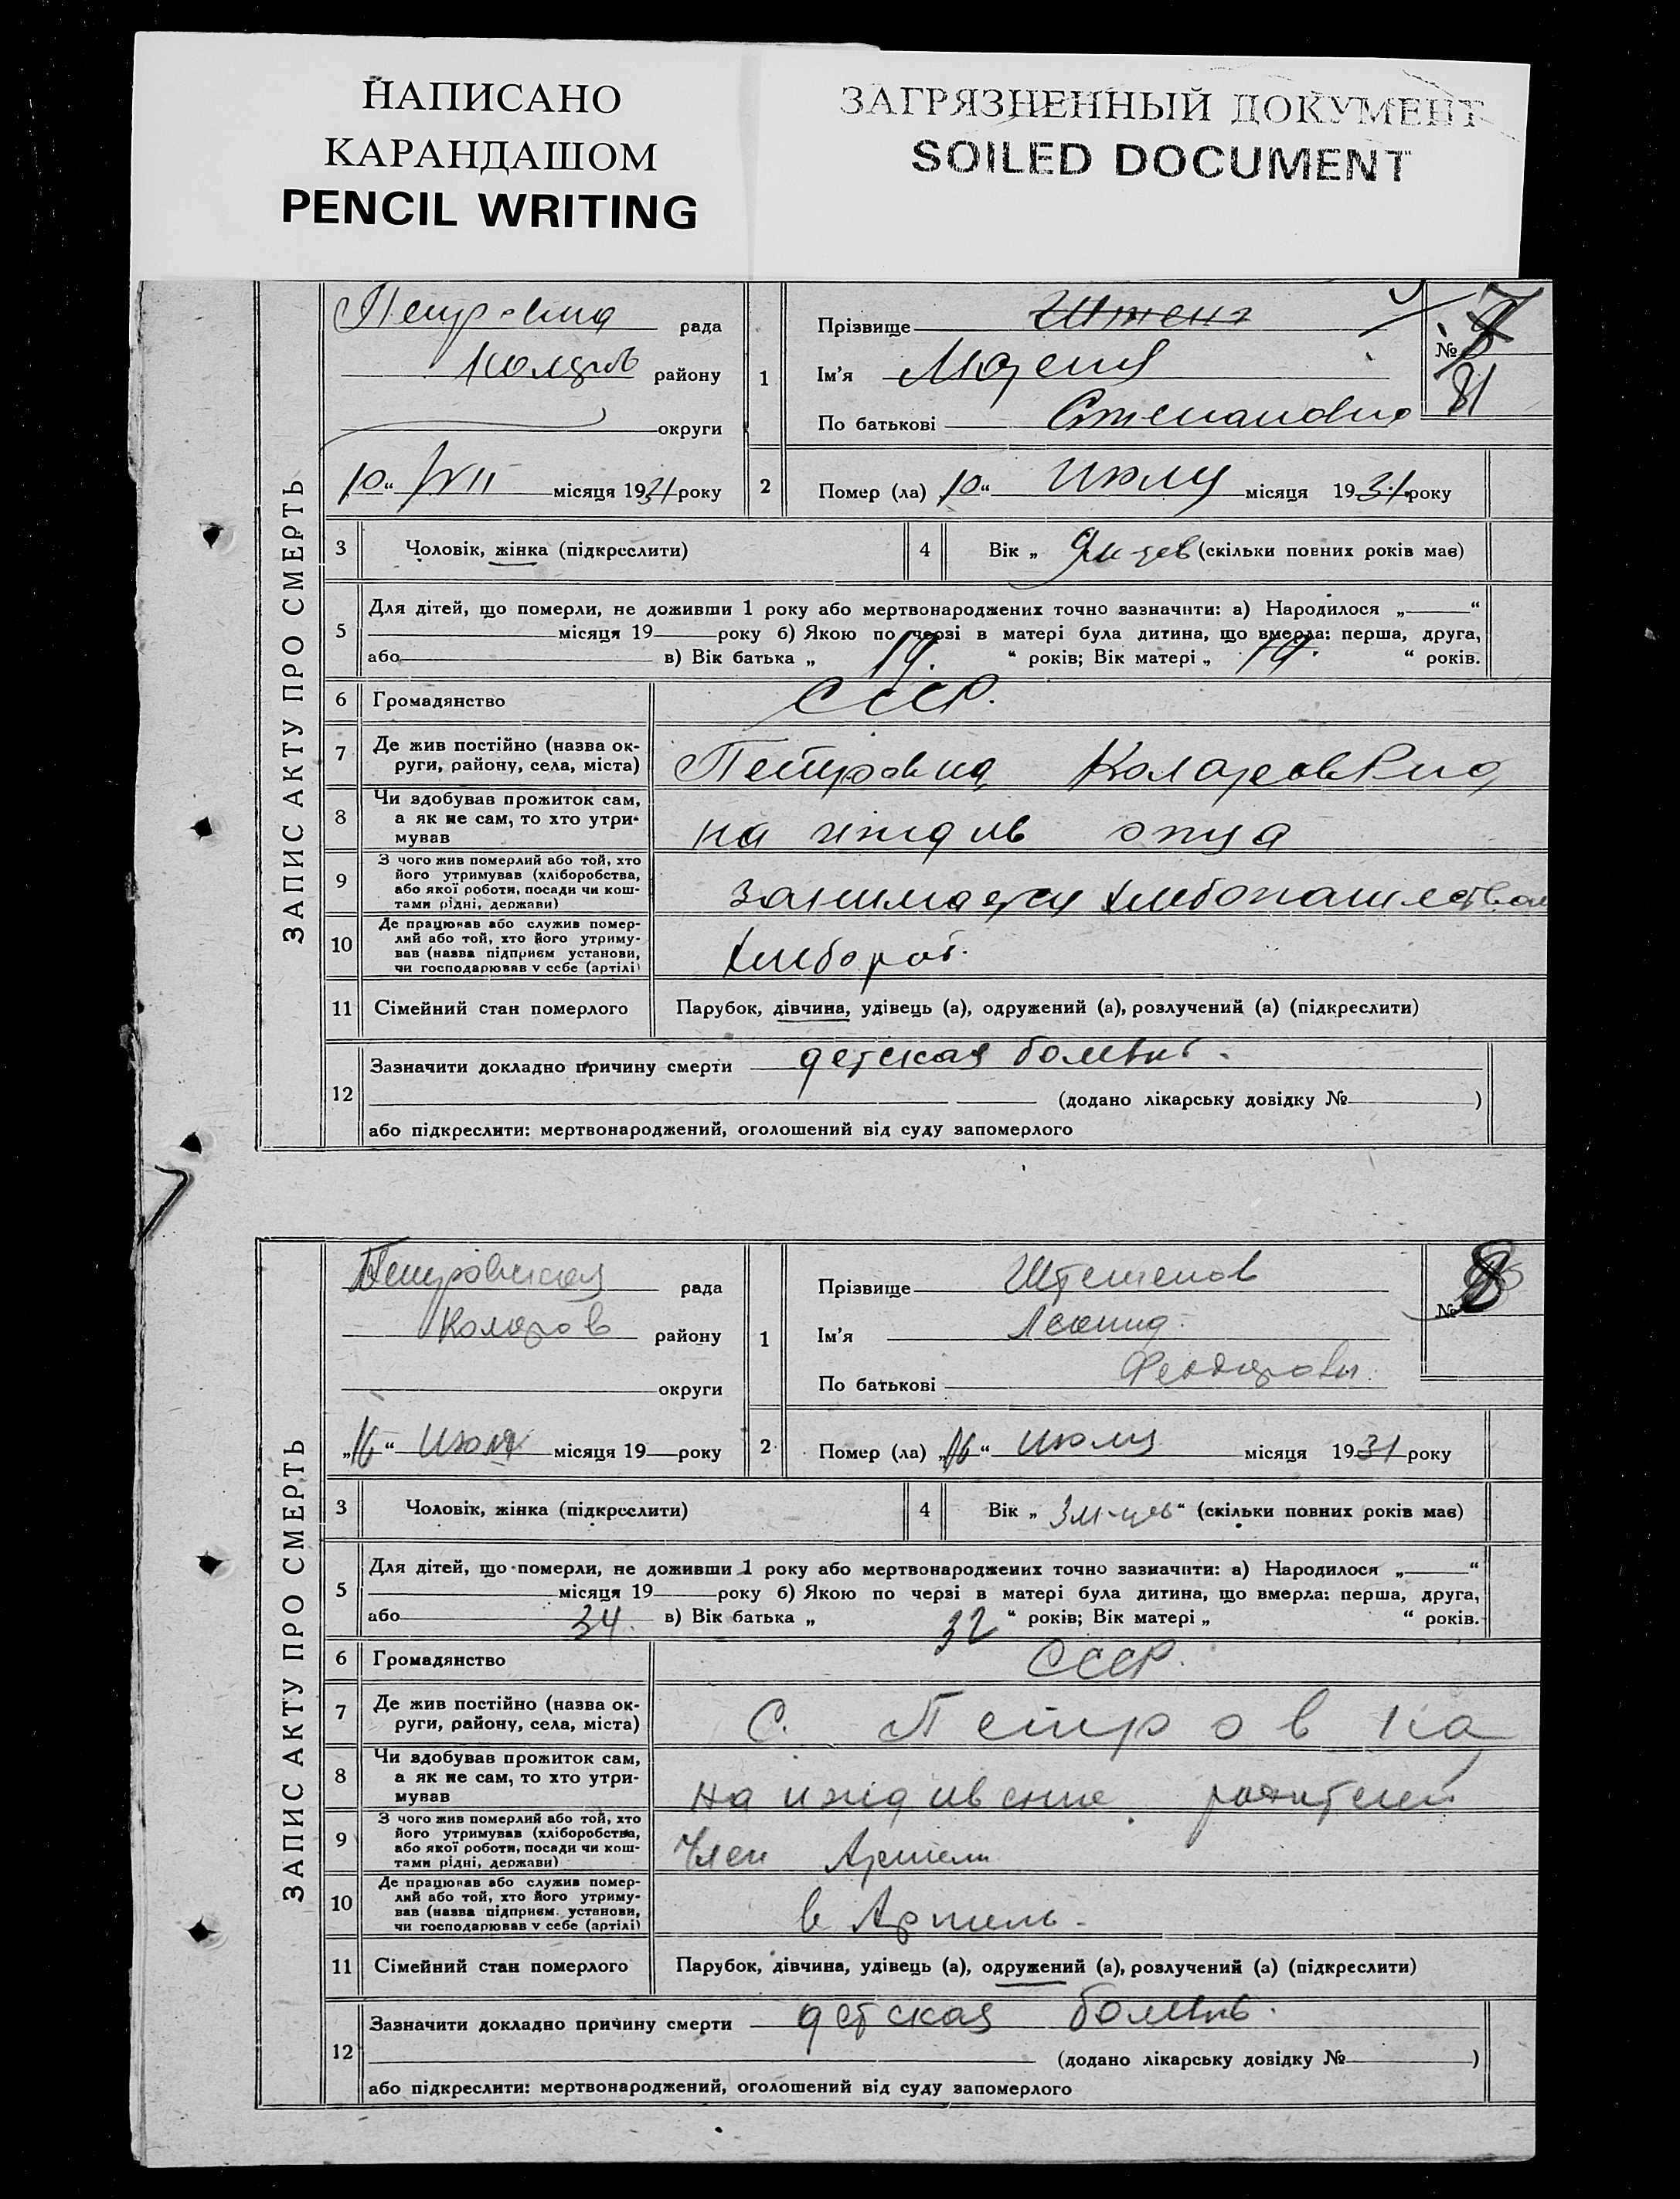 НАПИСАНО
КАРАНДАШОМ
PENCIL WRITING
ЗАГРЯЗНЕННЫЙ ДОКУМЕНТ
SOILED DOCUMENT
ЗАПИС АКТУ ПРО СМЕРТЬ
рада
району
округи
10 " VII місяця 1931 року
1
Прізвище
Ім'я Мария
По батькові Степановна
№ 7
81
2
Помер (ла) 10 " Июля місяця 1931. року
3 Чоловік, жінка (підкреслити)
4 Вік „ (скільки повних років має)
5 Для дітей, що померли, не доживши 1 року або мертвонароджених точно зазначити: а) Народилося „ "
місяця 19 року б) Якою по черзі в матері була дитина, що вмерла: перша, друга,
або в) Вік батька „ 19. " років; Вік матері „ 19. " років.
6 Громадянство СССР.
7 Де жив постійно (назва ок-
руги, району, села, міста)
Петровка
8 Чи здобував прожиток сам,
а як не сам, то хто утри-
мував
на иждив отца
9 З чого жив померлий або той, хто
його утримував (хліборобства,
або якої роботи, посади чи кош-
тами рідні, держави)
занимается хлебопашеством
10 Де працював або служив помер-
лий або той, хто його утриму-
вав (назва підприєм установи,
чи господарював у себе (артілі)
хлебороб.
11 Сімейний стан померлого Парубок, дівчина, удівець (а), одружений (а), розлучений (а) (підкреслити)
12 Зазначити докладно причину смерти детская болезнь.
(додано лікарську довідку № )
або підкреслити: мертвонароджений, оголошений від суду запомерлого
ЗАПИС АКТУ ПРО СМЕРТЬ
Петровская рада
Коларов району
округи
„16" июля місяця 19 року
1
Прізвище
Ім'я Леонид.
По батькові
№ 8
2
Помер (ла) „16" июля місяця 1931 року
3 Чоловік, жінка (підкреслити)
4 Вік „ 3 м-цев " (скільки повних років має)
5 Для дітей, що померли, не доживши 1 року або мертвонароджених точно зазначити: а) Народилося „ "
місяця 19 року б) Якою по черзі в матері була дитина, що вмерла: перша, друга,
або 34. в) Вік батька „ 32 " років; Вік матері „ " років.
6 Громадянство СССР.
7 Де жив постійно (назва ок-
руги, району, села, міста)
С. Петровка
8 Чи здобував прожиток сам,
а як не сам, то хто утри-
мував
на иждивение родителей
9 З чого жив померлий або той, хто
його утримував (хліборобства,
або якої роботи, посади чи кош-
тами рідні, держави)
Член Артели
10 Де працював або служив помер-
лий або той, хто його утриму-
вав (назва підприєм. установи,
чи господарював у себе (артілі)
в Артель.
11 Сімейний стан померлого Парубок, дівчина, удівець (а), одружений (а), розлучений (а) (підкреслити)
12 Зазначити докладно причину смерти детская болезнь.
(додано лікарську довідку № )
або підкреслити: мертвонароджений, оголошений від суду запомерлого